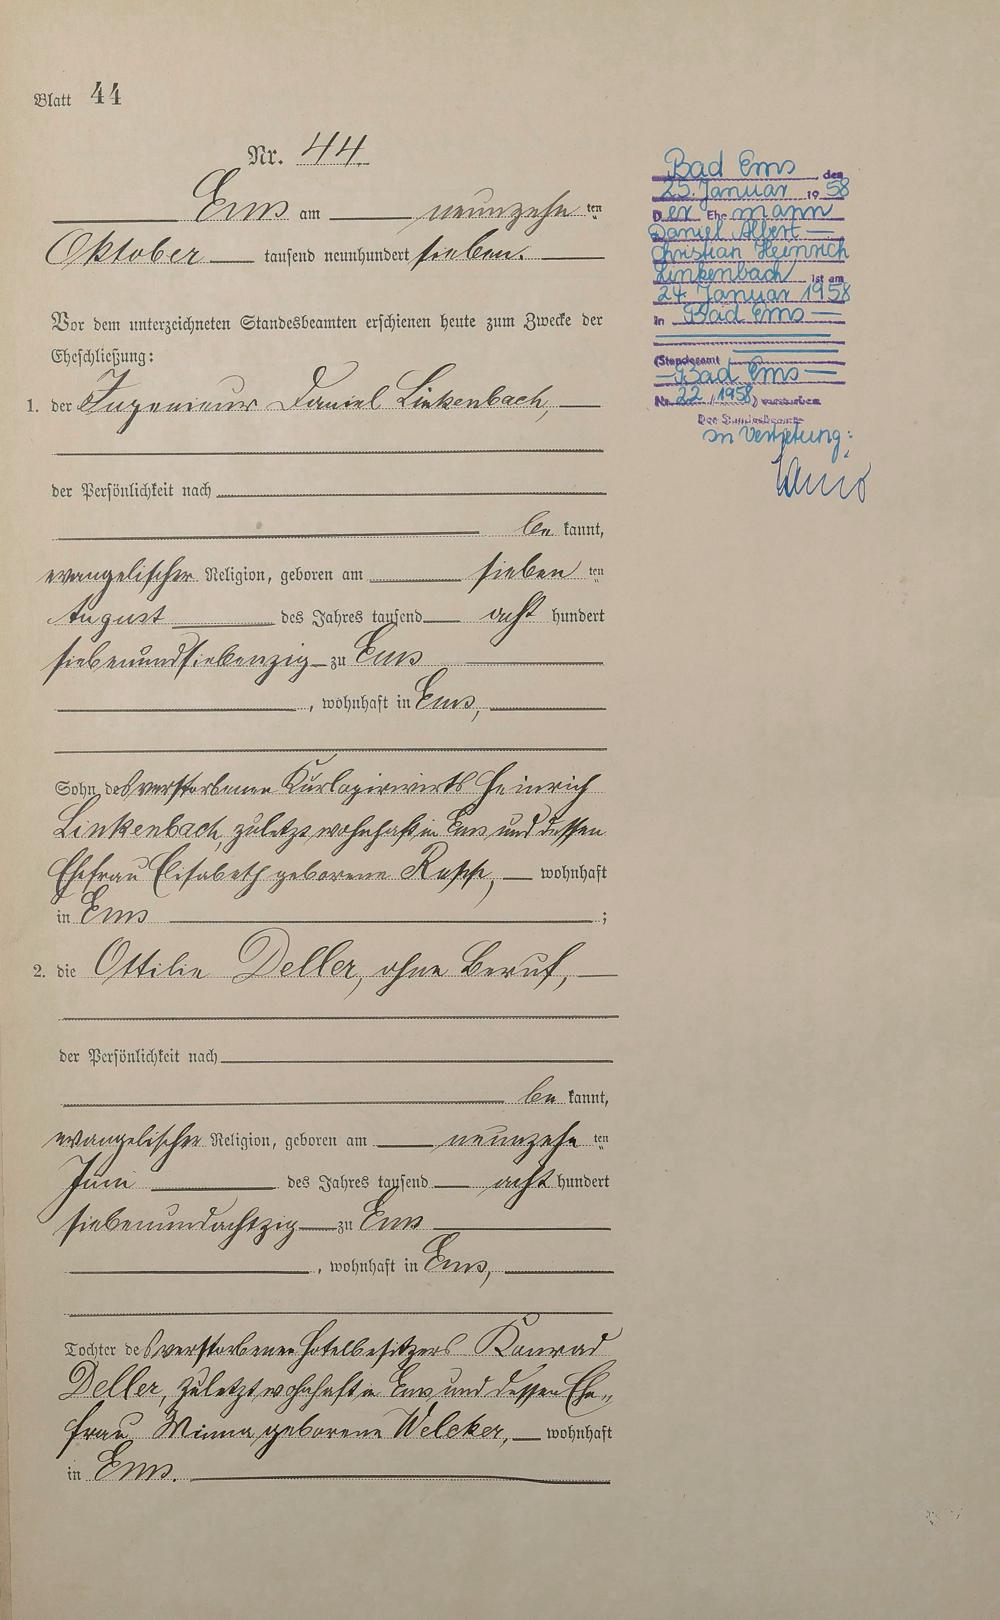 Blatt 44
Nr. 44.
Ems am neunzehn ten
Oktober tausend neunhundert sieben.
Vor dem unterzeichneten Standesbeamten erschienen heute zum Zwecke der
Eheschließung:
1. der Ingenieur Daniel Linkenbach,
der Persönlichkeit nach
be kannt,
evangelischer Religion, geboren am sieben ten
August des Jahres tausend acht hundert
siebenundsiebenzig zu Ems
, wohnhaft in Ems,
Sohn des verstorbenen Heinrich
Linkenbach, zuletzt wohnhaft in Ems und dessen
Ehefrau Elisabeth geborene Rapp, wohnhaft
in Ems ;
2. die Ottilie Deller, ohne Beruf,
der Persönlichkeit nach
be kannt,
evangelischer Religion, geboren am neunzehn ten
Juni des Jahres tausend acht hundert
siebenundachtzig zu Ems
, wohnhaft in Ems,
Tochter des verstorbenen Hotelbesitzers Konrad
Deller, zuletzt wohnhaft in Ems und dessen Ehe-
frau Minna geborene Welcker, wohnhaft
in Ems.
Bad Ems, den
25. Januar 19 58
Der Ehemann
Daniel Albert
Christian Heinrich
Linkenbach ist am
24. Januar 1958
in Bad Ems
(Standesamt
Bad Ems
Nr. 22 / 1958) verstorben
Der Standesbeamte
In Vertretung: